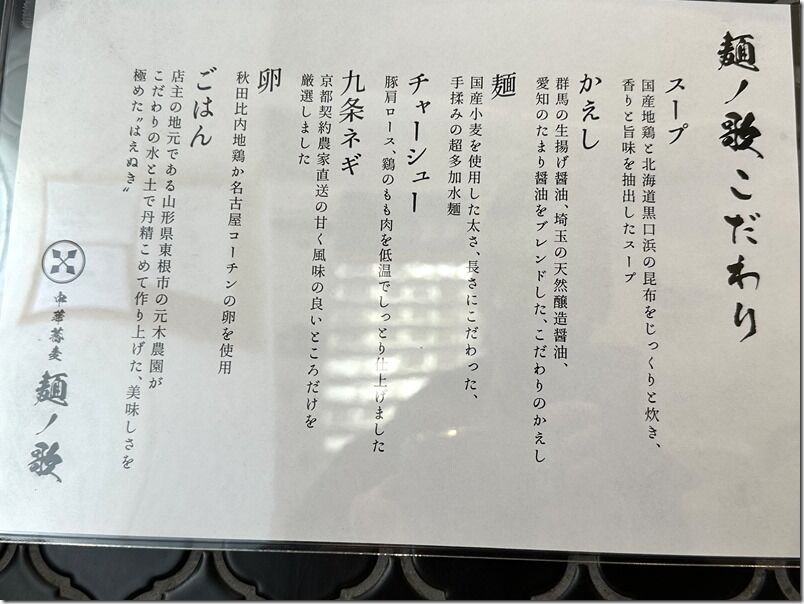 麺ノ歌こだわり
スープ
国産地鶏と北海道黒口浜の昆布をじっくりと炊き、
香りと旨味を抽出したスープ
かえし
群馬の生揚げ醤油、埼玉の天然醸造醤油、
愛知のたまり醤油をブレンドした、こだわりのかえし
麺
国産小麦を使用した太さ、長さにこだわった、
手揉みの超多加水麺
チャーシュー
豚肩ロース、鶏のもも肉を低温でしっとり仕上げました
九条ネギ
京都契約農家直送の甘く風味の良いところだけを
厳選しました
卵
秋田比内地鶏か名古屋コーチンの卵を使用
ごはん
店主の地元である山形県東根市の元木農園が
こだわりの水と土で丹精こめて作り上げた、美味しさを
極めた“はえぬき”
中華蕎麦
麺ノ歌